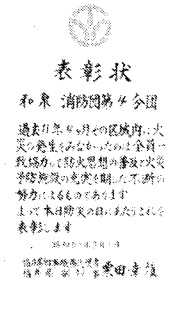 表彰状
和泉 消防団第4分団
過去11年4ヶ月その区域内に火
災の発生をみなかったのは全員一
致協力して防火思想の普及と火災
予防施設の充実を期した不断の
努力によるものであります
よって本日防災の日にあたりこれを
表彰します
栗田幸雄